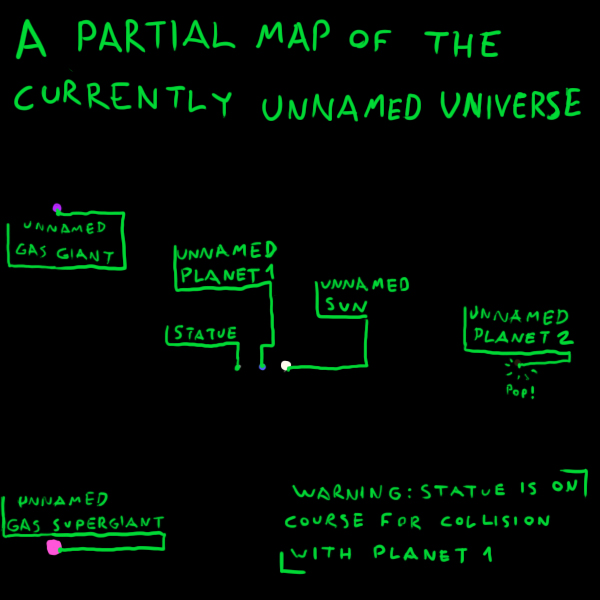 A PARTIAL MAP OF THE
CURRENTLY UNNAMED UNIVERSE
UNNAMED
GAS GIANT
UNNAMED
PLANET 1
UNNAMED
SUN
STATUE
UNNAMED
PLANET 2
POP!
UNNAMED
GAS SUPERGIANT
WARNING: STATUE IS ON
COURSE FOR COLLISION
WITH PLANET 1